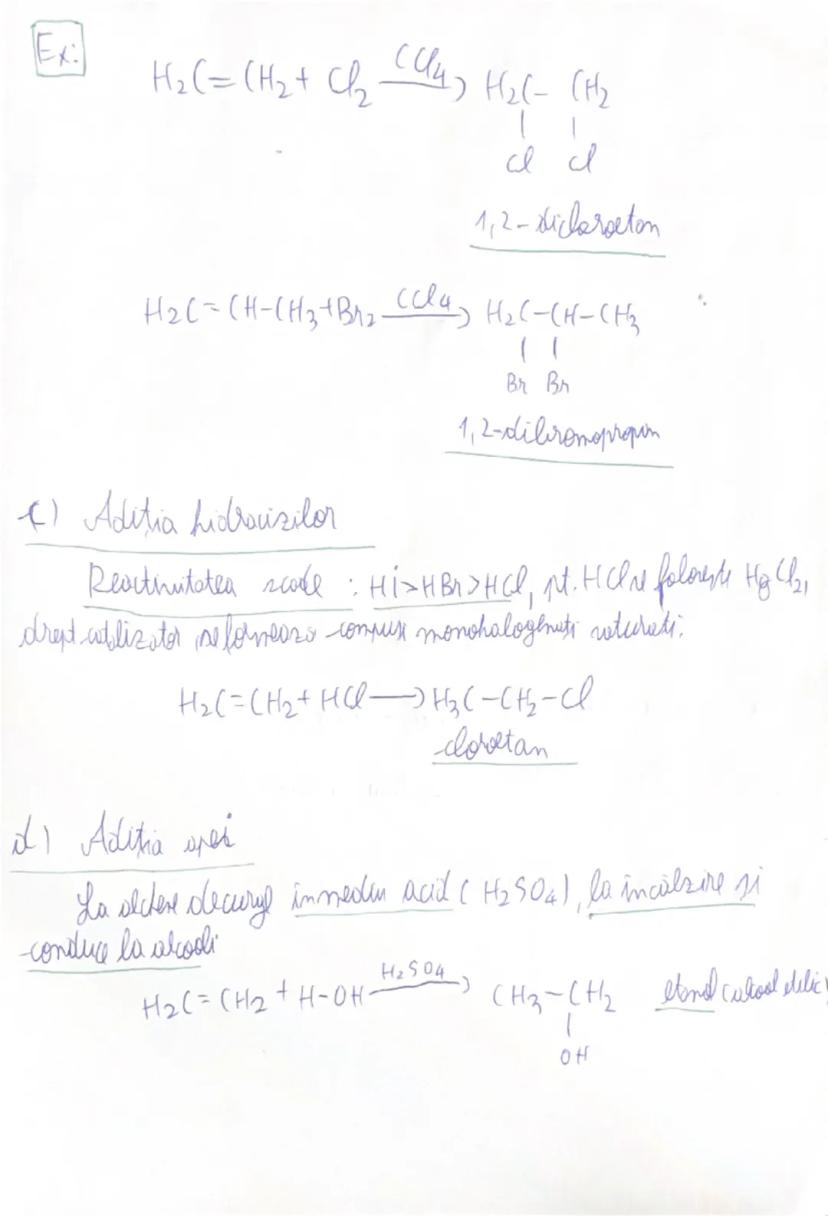 Ex:
H2C=CH2 + Cl2 CCl4→ H2C- CH2
| |
Cl Cl
1,2-dicloroetan
H2C=CH-CH3+Br2 CCl4→ H2C-CH-CH3
| |
Br Br
1,2-dibromopropan
c) Adiția hidracizilor
Reactivitatea scade : HI>HBr>HCl, pt. HCl se folosește HgCl2,
drept catalizator se formează compuși monohalogenați saturați.
H2C=CH2 + HCl → H3C-CH2-Cl
cloroetan
d) Adiția apei
La alchene decurge în mediu acid (H2SO4), la încălzire și
conduce la alcooli
H2C=CH2 + H-OH H2SO4→ CH3-CH2 etanol (alcool etilic)
|
OH